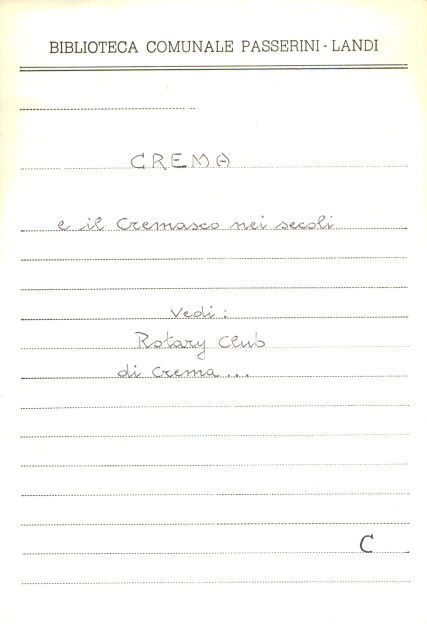 BIBLIOTECA COMUNALE PASSERINI - LANDI
CREMA
e il Cremasco nei secoli
Vedi :
Rotary Club
di Crema ...
C